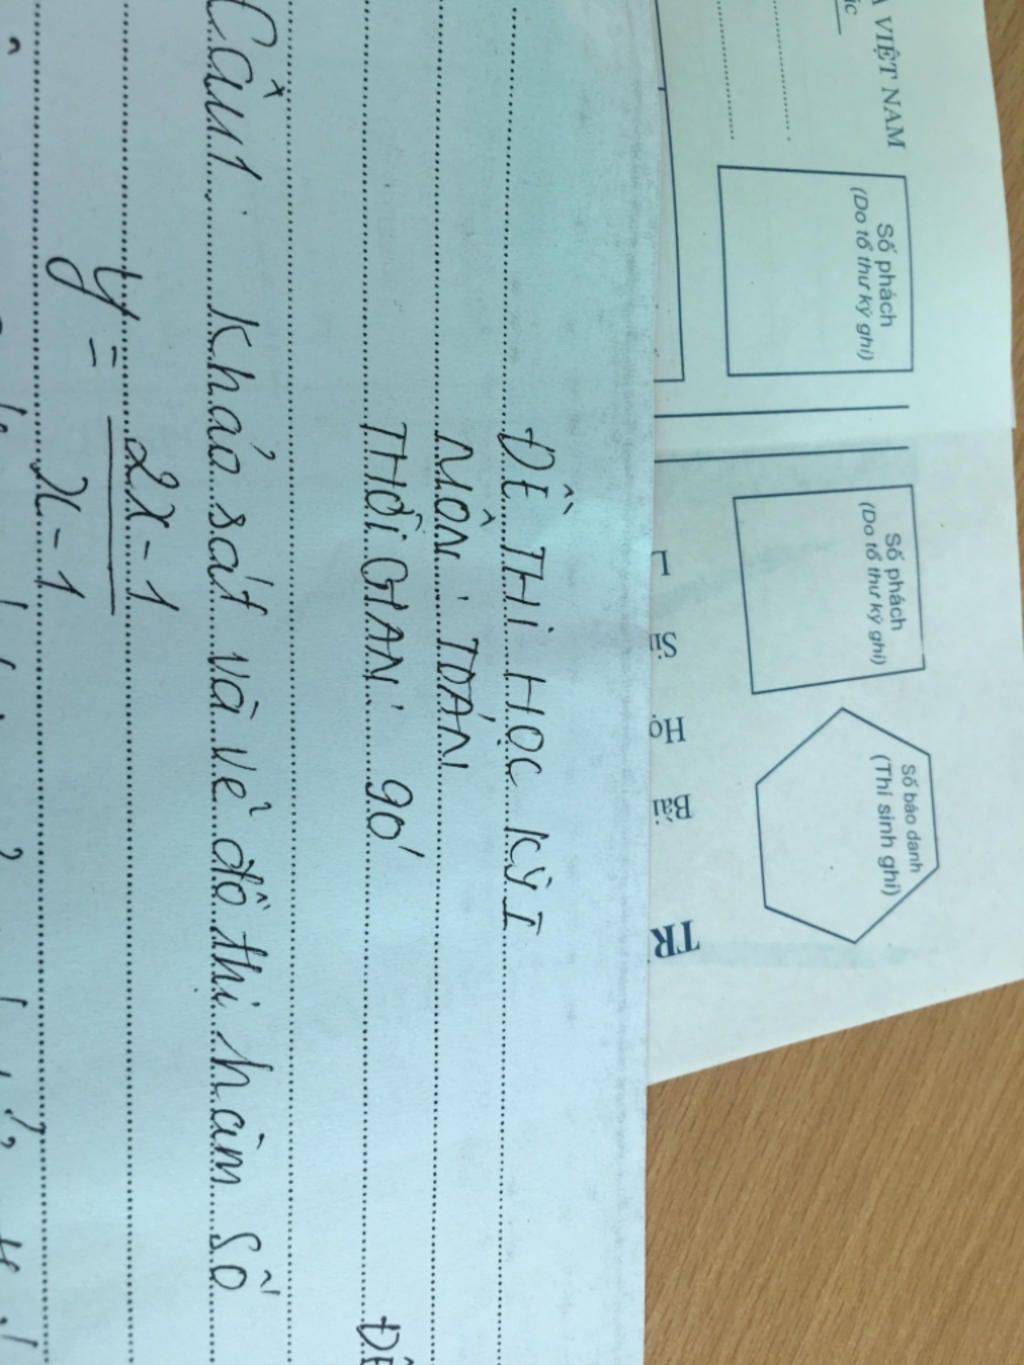 VIỆT NAM
Số phách
(Do tổ thư ký ghi)
Số phách
(Do tổ thư ký ghi)
Số báo danh
(Thí sinh ghi)
TR
Bài
Họ
ĐỀ THI HỌC KỲ I
MÔN: TOÁN
THỜI GIAN: 90'
Câu 1: Khảo sát và vẽ đồ thị hàm số
y = 2x - 1
x - 1